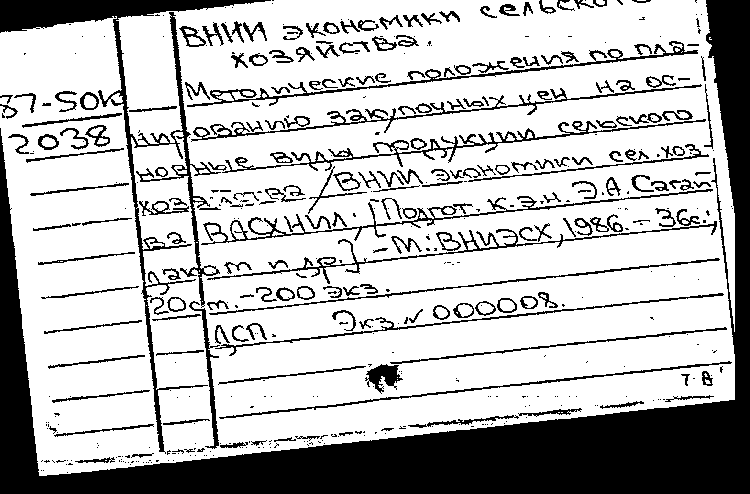 ВНИИ экономики сельского
хозяйства.
87-50К
Методические положения по пла-
2038
нированию закупочных цен на ос-
новные виды продукции сельского
хозяйства / ВНИИ экономики сел. хоз-
ва ВАСХНИЛ; [Подгот. к.э.н. Э.А. Сагай-
дакот и др.]. - М.: ВНИЭСХ, 1986. - 36с.;
20см. - 200 экз.
ДСП. Экз. № 000008.